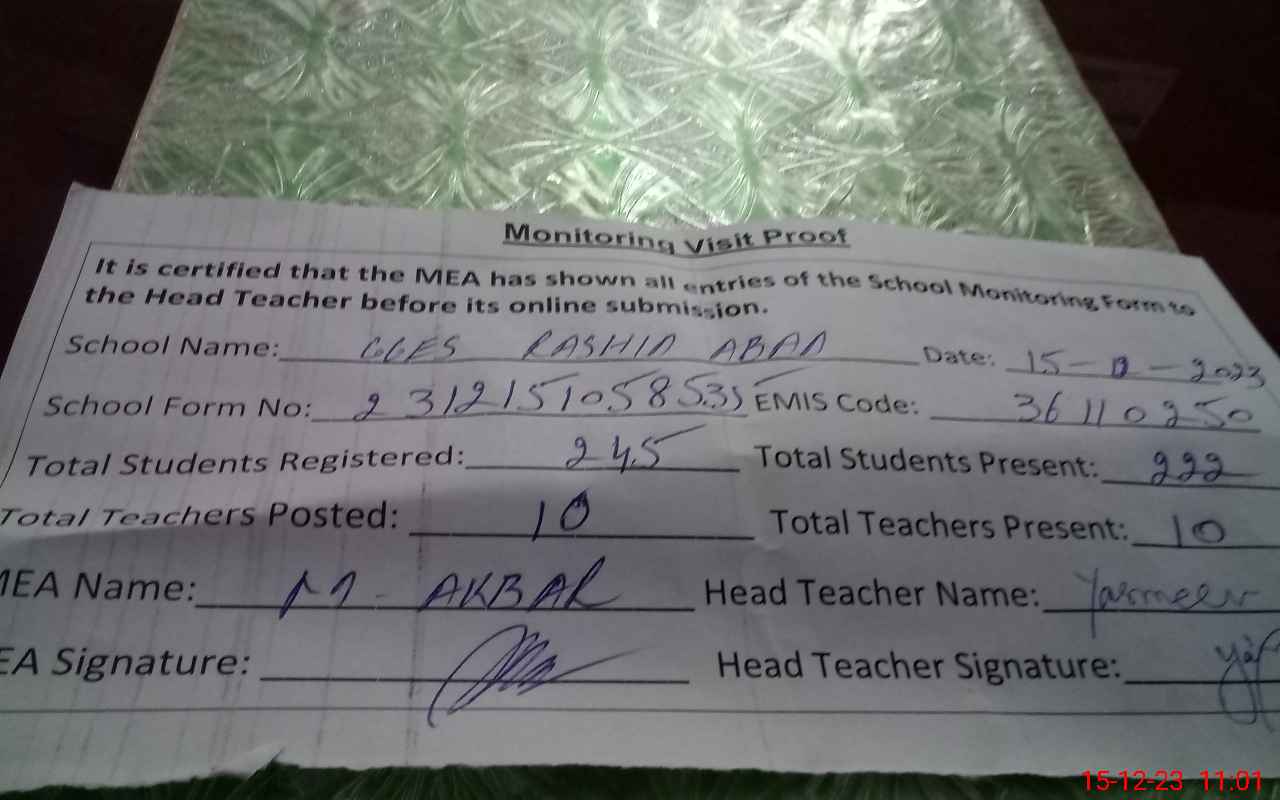 Monitoring Visit Proof
It is certified that the MEA has shown all entries of the School Monitoring Form to
the Head Teacher before its online submission.
School Name: GGES RASHID ABAD Date: 15- -2023
School Form No: 2312151058535 EMIS Code: 36110250
Total Students Registered: 245 Total Students Present: 222
Total Teachers Posted: 10 Total Teachers Present: 10
MEA Name: M. AKBAR Head Teacher Name: Yasmeen
EA Signature: Head Teacher Signature:
15-12-23 11:01